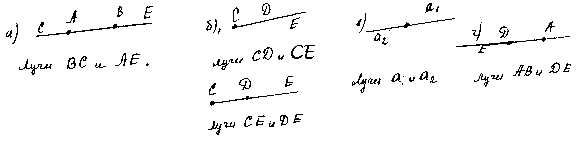 а) C A B E
лучи BC и AE.
б), C D E
лучи CD и CE
C D E
лучи CE и DE
в) a₂ a₁
лучи a₁ и a₂
г) E D A
лучи AB и DE